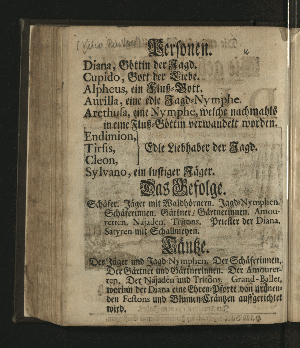 Personen.
Diana, Göttin der Jagd.
Cupido, Gott der Liebe.
Alpheus, ein Fluß-Gott.
Aurilla, eine edle Jagd-Nymphe.
Arethusa, eine Nymphe, welche nachmahls
in eine Fluß-Göttin verwandelt worden.
Endimion,
Tirsis, Edle Liebhaber der Jagd.
Cleon,
Sylvano, ein lustiger Jäger.
Das Gefolge.
Schäfer. Jäger mit Waldhörnern. Jagd-Nymphen.
Schäferinnen. Gärtner/ Gärtnerinnen. Amou-
retten. Najaden. Tritons. Priester der Diana.
Satyren mit Schallmeyen.
Täntze.
Der Jäger und Jagd-Nymphen. Der Schäferinnen.
Der Gärtner und Gärtnerinnen. Der Amouret-
ten. Der Najaden und Tritons. Grand-Ballet,
worinn der Diana eine Ehren-Pforte von
den Festons und Blumen-Cräntzen auffgerichtet
wird.